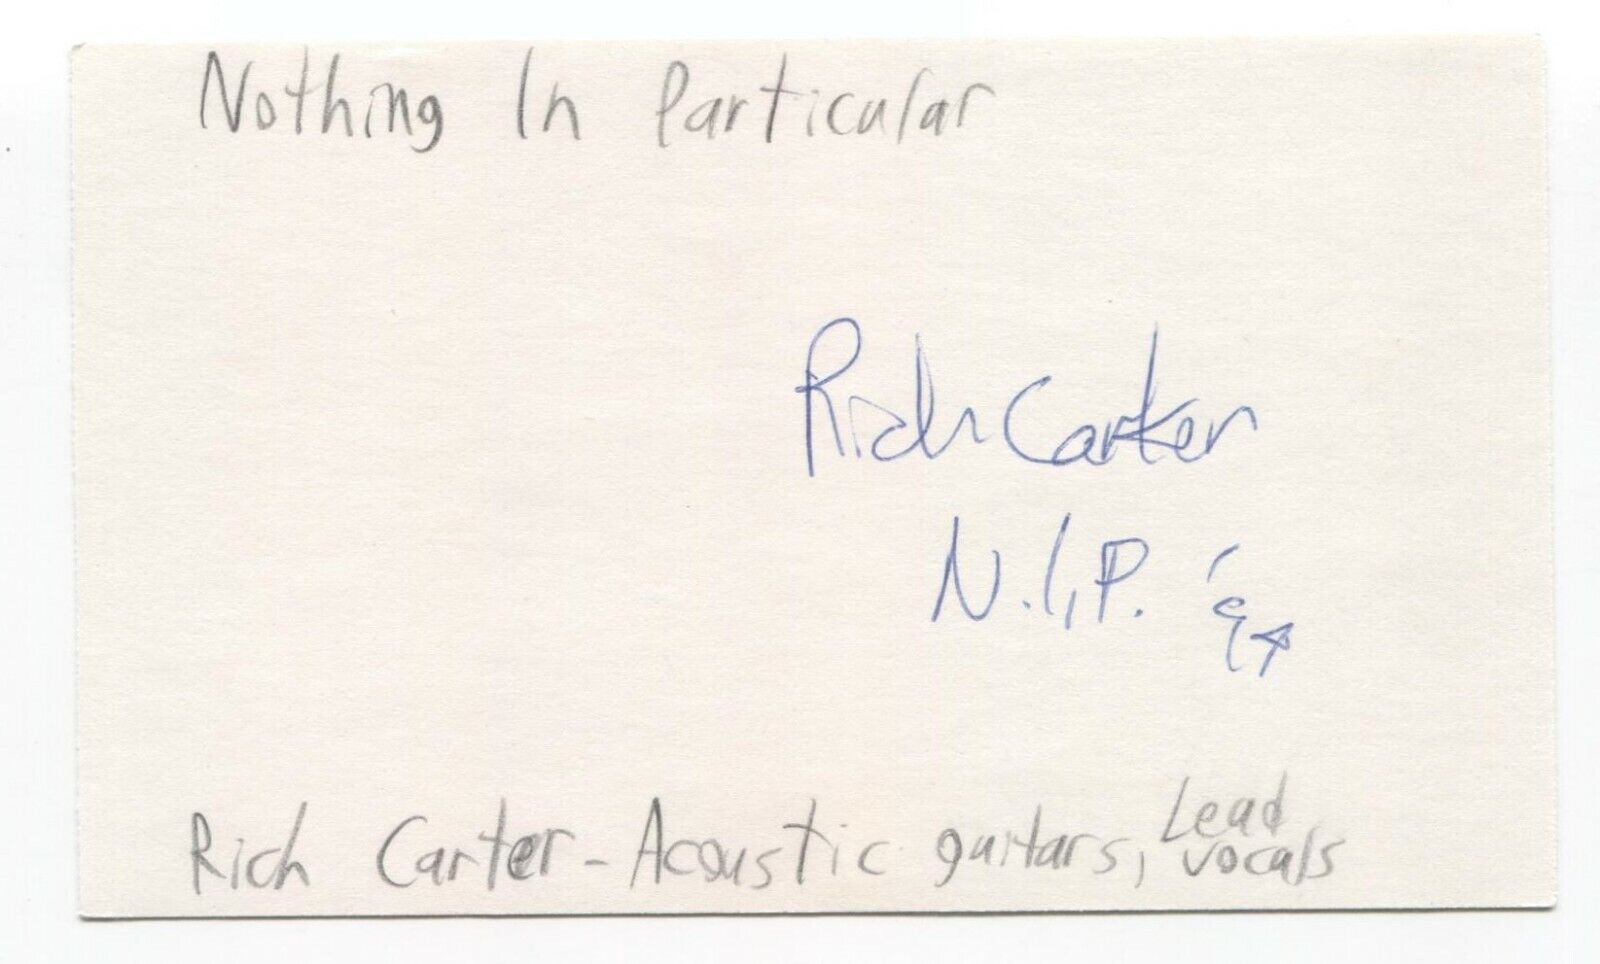 Nothing In Particular
Rich Carter
N.I.P. '94
Rich Carter - Acoustic guitars, Lead vocals